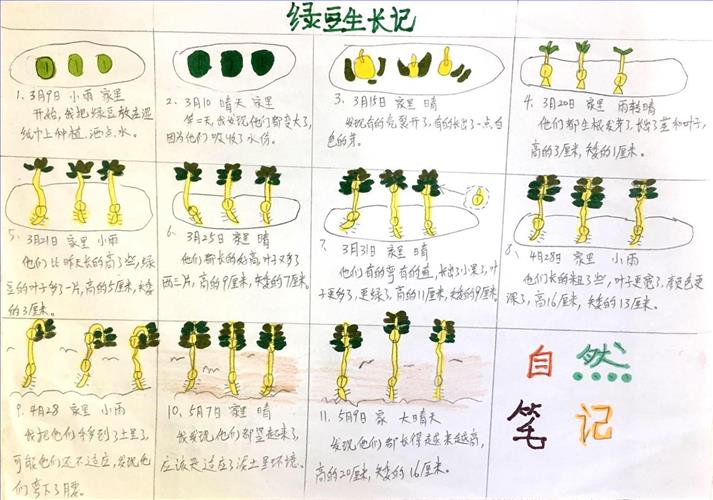 绿豆生长记
1. 3月9日 小雨 家里
开始,我把绿豆放在湿
纸巾上种植,洒点水。
2. 3月10 晴天 家里
第二天,我发现他们都变大了,
因为他们吸收了水份。
3. 3月15日 家里 晴
发现有的壳裂开了,有的长出了一点白
色的芽。
4. 3月20日 家里 雨转晴
他们都生根发芽了,长出了茎和叶子,
高的3厘米,矮的1厘米。
5. 3月21日 家里 小雨
他们比昨天长的高了些,绿
豆的叶子多了一片,高的5厘米,矮的
的3厘米。
6. 3月25日 家里 晴
他们都长的好高,叶子又多了
两三片,高的9厘米,矮的7厘米。
7. 3月31日 家里 晴
他们有的弯有的直,长出了小果了,叶
子更多了,更绿了,高的11厘米,矮的9厘米。
8. 4月28日 家里 小雨
他们长的粗了些,叶子更宽了,颜色更
深了,高16厘米,矮的13厘米。
9. 4月28 家里 小雨
我把他们移到了土里了,
可能他们还不适应,发现他
们弯下了腰。
10. 5月7日 家里 晴
我发现他们都竖起来了,
应该是适应了泥土里环境。
11. 5月9日 家 大晴天
发现他们都长得越来越高,
高的20厘米,矮的16厘米。
自然
笔记